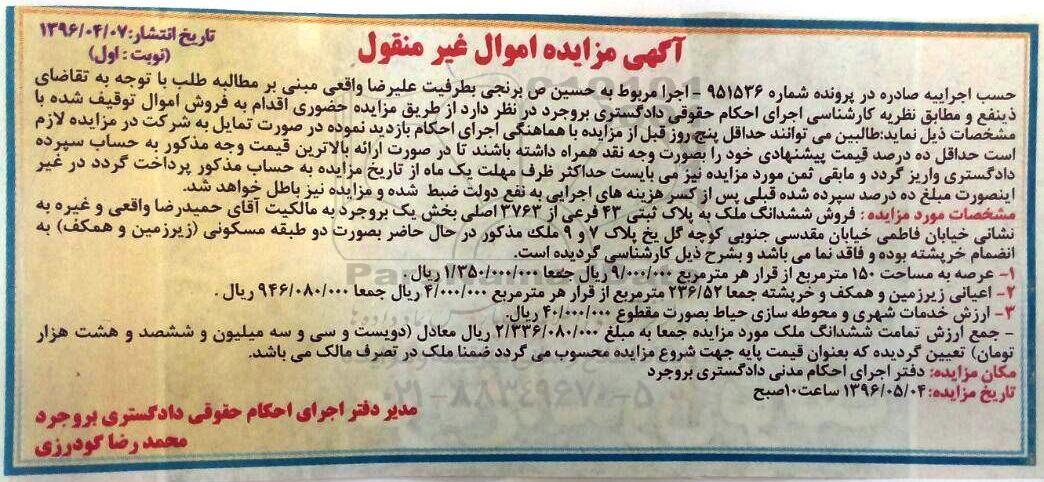 آگهی مزایده اموال غیر منقول
تاریخ انتشار:۱۳۹۶/۰۴/۰۷
(نوبت : اول)
حسب اجراییه صادره در پرونده شماره ۹۵۱۵۳۶ - اجرا مربوط به حسین ص برنجی بطرفیت علیرضا واقعی مبنی بر مطالبه طلب با توجه به تقاضای
ذینفع و مطابق نظریه کارشناسی اجرای احکام حقوقی دادگستری بروجرد در نظر دارد از طریق مزایده حضوری اقدام به فروش اموال توقیف شده با
مشخصات ذیل نماید:طالبین می توانند حداقل پنج روز قبل از مزایده با هماهنگی اجرای احکام بازدید نموده در صورت تمایل به شرکت در مزایده لازم
است حداقل ده درصد قیمت پیشنهادی خود را بصورت وجه نقد همراه داشته باشند تا در صورت ارائه بالاترین قیمت وجه مذکور به حساب سپرده
دادگستری واریز گردد و مابقی ثمن مورد مزایده نیز می بایست حداکثر ظرف مهلت یک ماه از تاریخ مزایده به حساب مذکور پرداخت گردد در غیر
اینصورت مبلغ ده درصد سپرده شده قبلی پس از کسر هزینه های اجرایی به نفع دولت ضبط شده و مزایده نیز باطل خواهد شد.
مشخصات مورد مزایده : فروش ششدانگ ملک به پلاک ثبتی ۴۳ فرعی از ۳۷۶۳ اصلی بخش یک بروجرد به مالکیت آقای حمیدرضا واقعی و غیره به
نشانی خیابان فاطمی خیابان مقدسی جنوبی کوچه گل یخ پلاک ۷ و ۹ ملک مذکور در حال حاضر بصورت دو طبقه مسکونی (زیرزمین و همکف) به
انضمام خرپشته بوده و فاقد نما می باشد و بشرح ذیل کارشناسی گردیده است.
۱- عرصه به مساحت ۱۵۰ مترمربع از قرار هر مترمربع ۹/۰۰۰/۰۰۰ ریال جمعا ۱/۳۵۰/۰۰۰/۰۰۰ ریال .
۲- اعیانی زیرزمین و همکف و خرپشته جمعا ۲۳۶/۵۲ مترمربع از قرار هر مترمربع ۴/۰۰۰/۰۰۰ ریال جمعا ۹۴۶/۰۸۰/۰۰۰ ریال .
۳- ارزش خدمات شهری و محوطه سازی حیاط بصورت مقطوع ۴۰/۰۰۰/۰۰۰ ریال.
- جمع ارزش تمامت ششدانگ ملک مورد مزایده جمعا به مبلغ ۲/۳۳۶/۰۸۰/۰۰۰ ریال معادل (دویست و سی و سه میلیون و ششصد و هشت هزار
تومان) تعیین گردیده که بعنوان قیمت پایه جهت شروع مزایده محسوب می گردد ضمنا ملک در تصرف مالک می باشد.
مکان مزایده: دفتر اجرای احکام مدنی دادگستری بروجرد
تاریخ مزایده: ۱۳۹۶/۰۵/۰۴ ساعت۱۰صبح
۰۲۱-۸۸۳۴۹۶۷۰-۵
مدیر دفتر اجرای احکام حقوقی دادگستری بروجرد
محمد رضا گودرزی